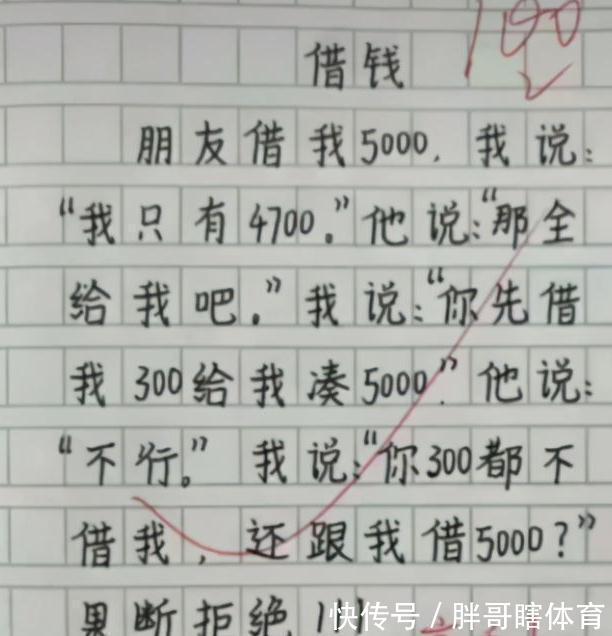 100
借钱
朋友借我5000,我说:
“我只有4700.”他说:“那全
给我吧.”我说:“你先借
我300给我凑5000.”他说:
“不行。”我说:“你300都不
借我,还跟我借5000?”
果断拒绝!!!
快传号/胖哥瞎体育